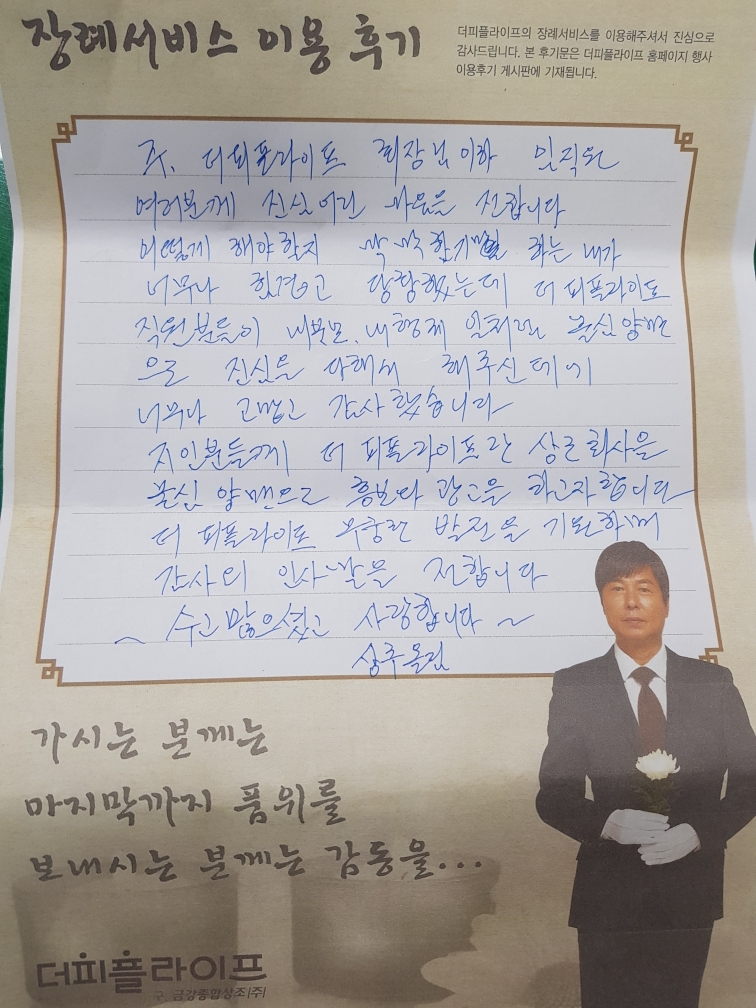 장례서비스 이용 후기
더피플라이프의 장례서비스를 이용해주셔서 진심으로
감사드립니다. 본 후기문은 더피플라이프 홈페이지 행사
이용후기 게시판에 기재됩니다.
주. 더피플라이프 회장님이하 임직원
여러분께 진심어린 마음을 전합니다
어떻게 해야할지 막막한기 하는 내가
너무나 힘겹고 당황했는데 더피플라이프
직원분들이 내부모, 내형제 일처럼 물심양면
으로 진심을 다해서 해주신데에
너무나 고맙고 감사했습니다
지인분들께 더 피플라이프란 상조회사을
물심 양면으로 홍보와 광고을 하고자합니다
더 피플라이프 무궁한 발전을 기원하며
감사의 인사말을 전합니다
~ 수고많으셨고 사랑합니다 ~
상주올림
가시는 분께는
마지막까지 품위를
보내시는 분께는 감동을...
더피플라이프
구. 금강종합상조(주)